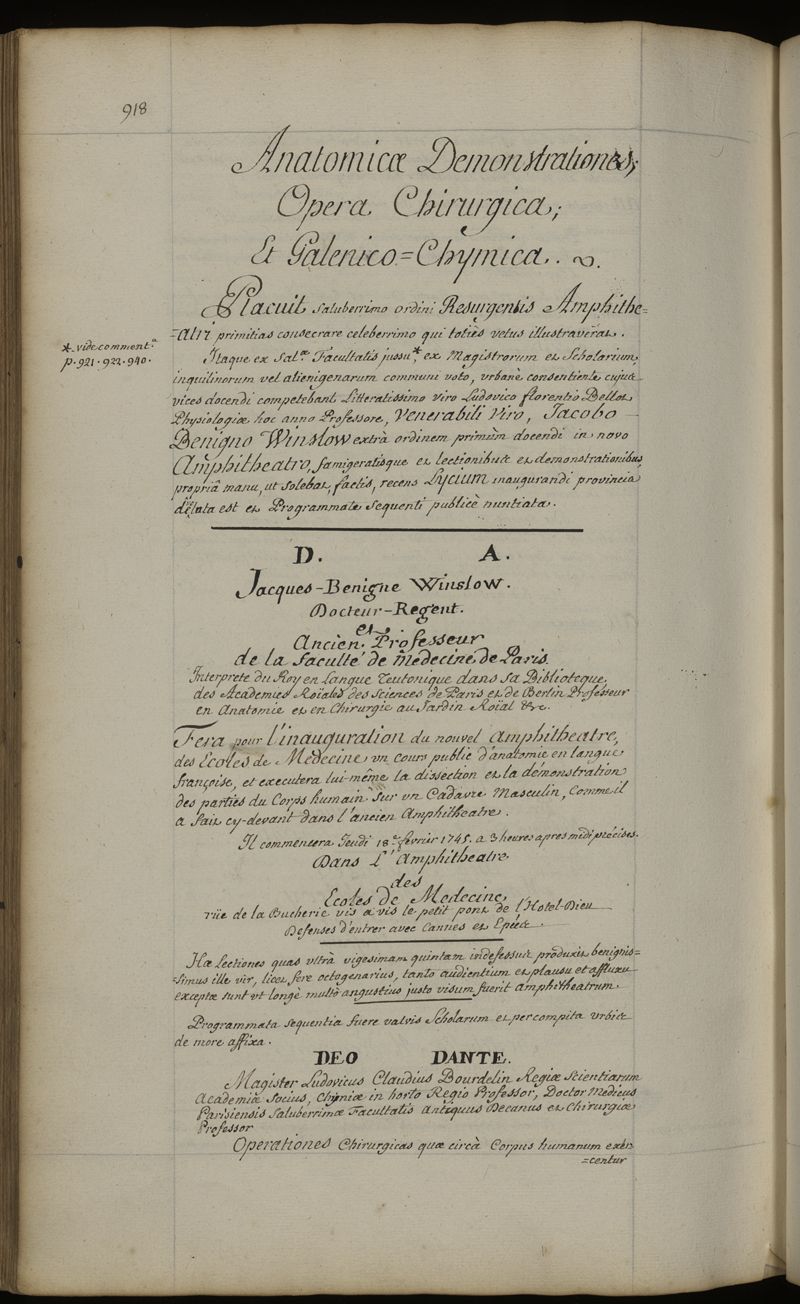 918
Anatomicæ Demonstrationes;
Opera Chirurgica;
Et Galenico=Chymica.
Placuit saluberrimo ordini Resurgentis Amphithe=
=atri primitias consecrare celeberrimo qui toties vetus illustraverat.
* vide comment.
p. 921. 922. 940.
Itaque ex Sal.æ Facultatis jussu * ex Magistrorum et Scholarium,
inquilinorum vel alienigenarum communi voto, urbanè consentiente cujus
vices docendi competebant Litteratissimo viro Ludovico florentio Bellot
Physiologiæ hoc anno Professore, Venerabili Viro, Jacobo
Benigno Winslow extrà ordinem primùm docendi in novo
Amphitheatro, famigeratisque et lectionibus et demonstrationibus
propriâ manu, ut solebat, factis, recens Lycium inaugurandi provincia
delata est et Programmate sequenti publicè nuntiata.
D. A.
Jacques-Benigne Winslow.
Docteur-Regent.
et
Ancien Professeur
de la faculté de Medecine de Paris.
Interprete du Roy en Langue Teutonique dans sa Biblioteque,
des Academies Roïales des Sciences de Paris et de Berlin Professeur
en Anatomie et en Chirurgie au Jardin Roial &c.
Fera pour l'inauguration du nouvel amphitheatre,
des Ecoles de Medecine un cours public d'anatomie en langue
françoise, et executera lui-même la dissection et la démonstration
des parties du Corps humain sur un Cadavre Masculin, Comme il
a fait cy-devant dans l'ancien Amphitheatre.
Il commencera Jeudi 18.e fevrier 1745. a 3 heures apres midi précises.
Dans L'Amphitheatre
des
Ecoles De Medecine,
rüe de la Bucherie vis a vis le petit pont de l'Hotel-Dieu
Defenses d'entrer avec Cannes et Epées.
Hæ Lectiones quas ultrà vigesimam quintam indefessus produxit benignis=
=simus ille vir, licet fere octogenarius, tanto audientium et plausu et affluxu
exceptæ sunt ut longè multò angustius justo visum fuerit amphitheatrum.
Programmata sequentia fuere valvis Scholarum et per compita urbis
de more affixa.
DEO DANTE.
Magister Ludovicus Claudius Bourdelin Regiæ Scientiarum
Academiæ Socius, Chymiæ in horto Regio Professor, Doctor Medicus
Parisiensis Saluberrimæ Facultatis Antiquus Decanus et Chirurgiæ
Professor
Operationes Chirurgicas quæ circà Corpus humanum exer
=centur